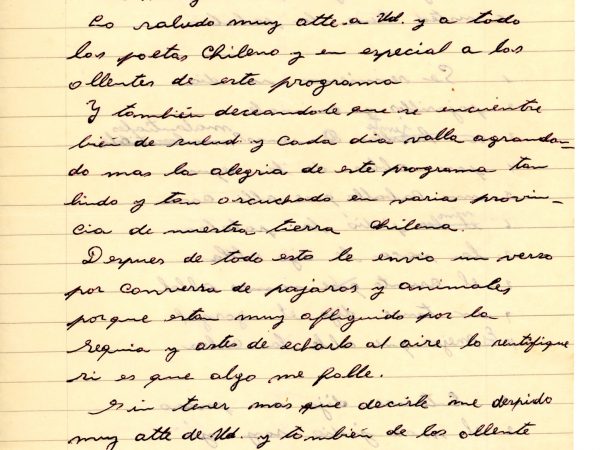 Lo saludo muy atte. a Ud. y a todo
los poetas Chileno y en especial a los
ollentes de este programa
Y también deceandole que se encuentre
bien de salud y cada dia valla agrandan-
do mas la alegria de este programa tan
lindo y tan escuchado en varia provin-
cia de nuestra tierra Chilena.
Despues de todo esto le envio un verso
por converra de pajaros y animales
porque estan muy afliguido por la
sequia y antes de echarlo al aire lo rentifique
si es que algo me falle.
Sin tener mas que decirle me despido
muy atte de Ud. y también de los ollente